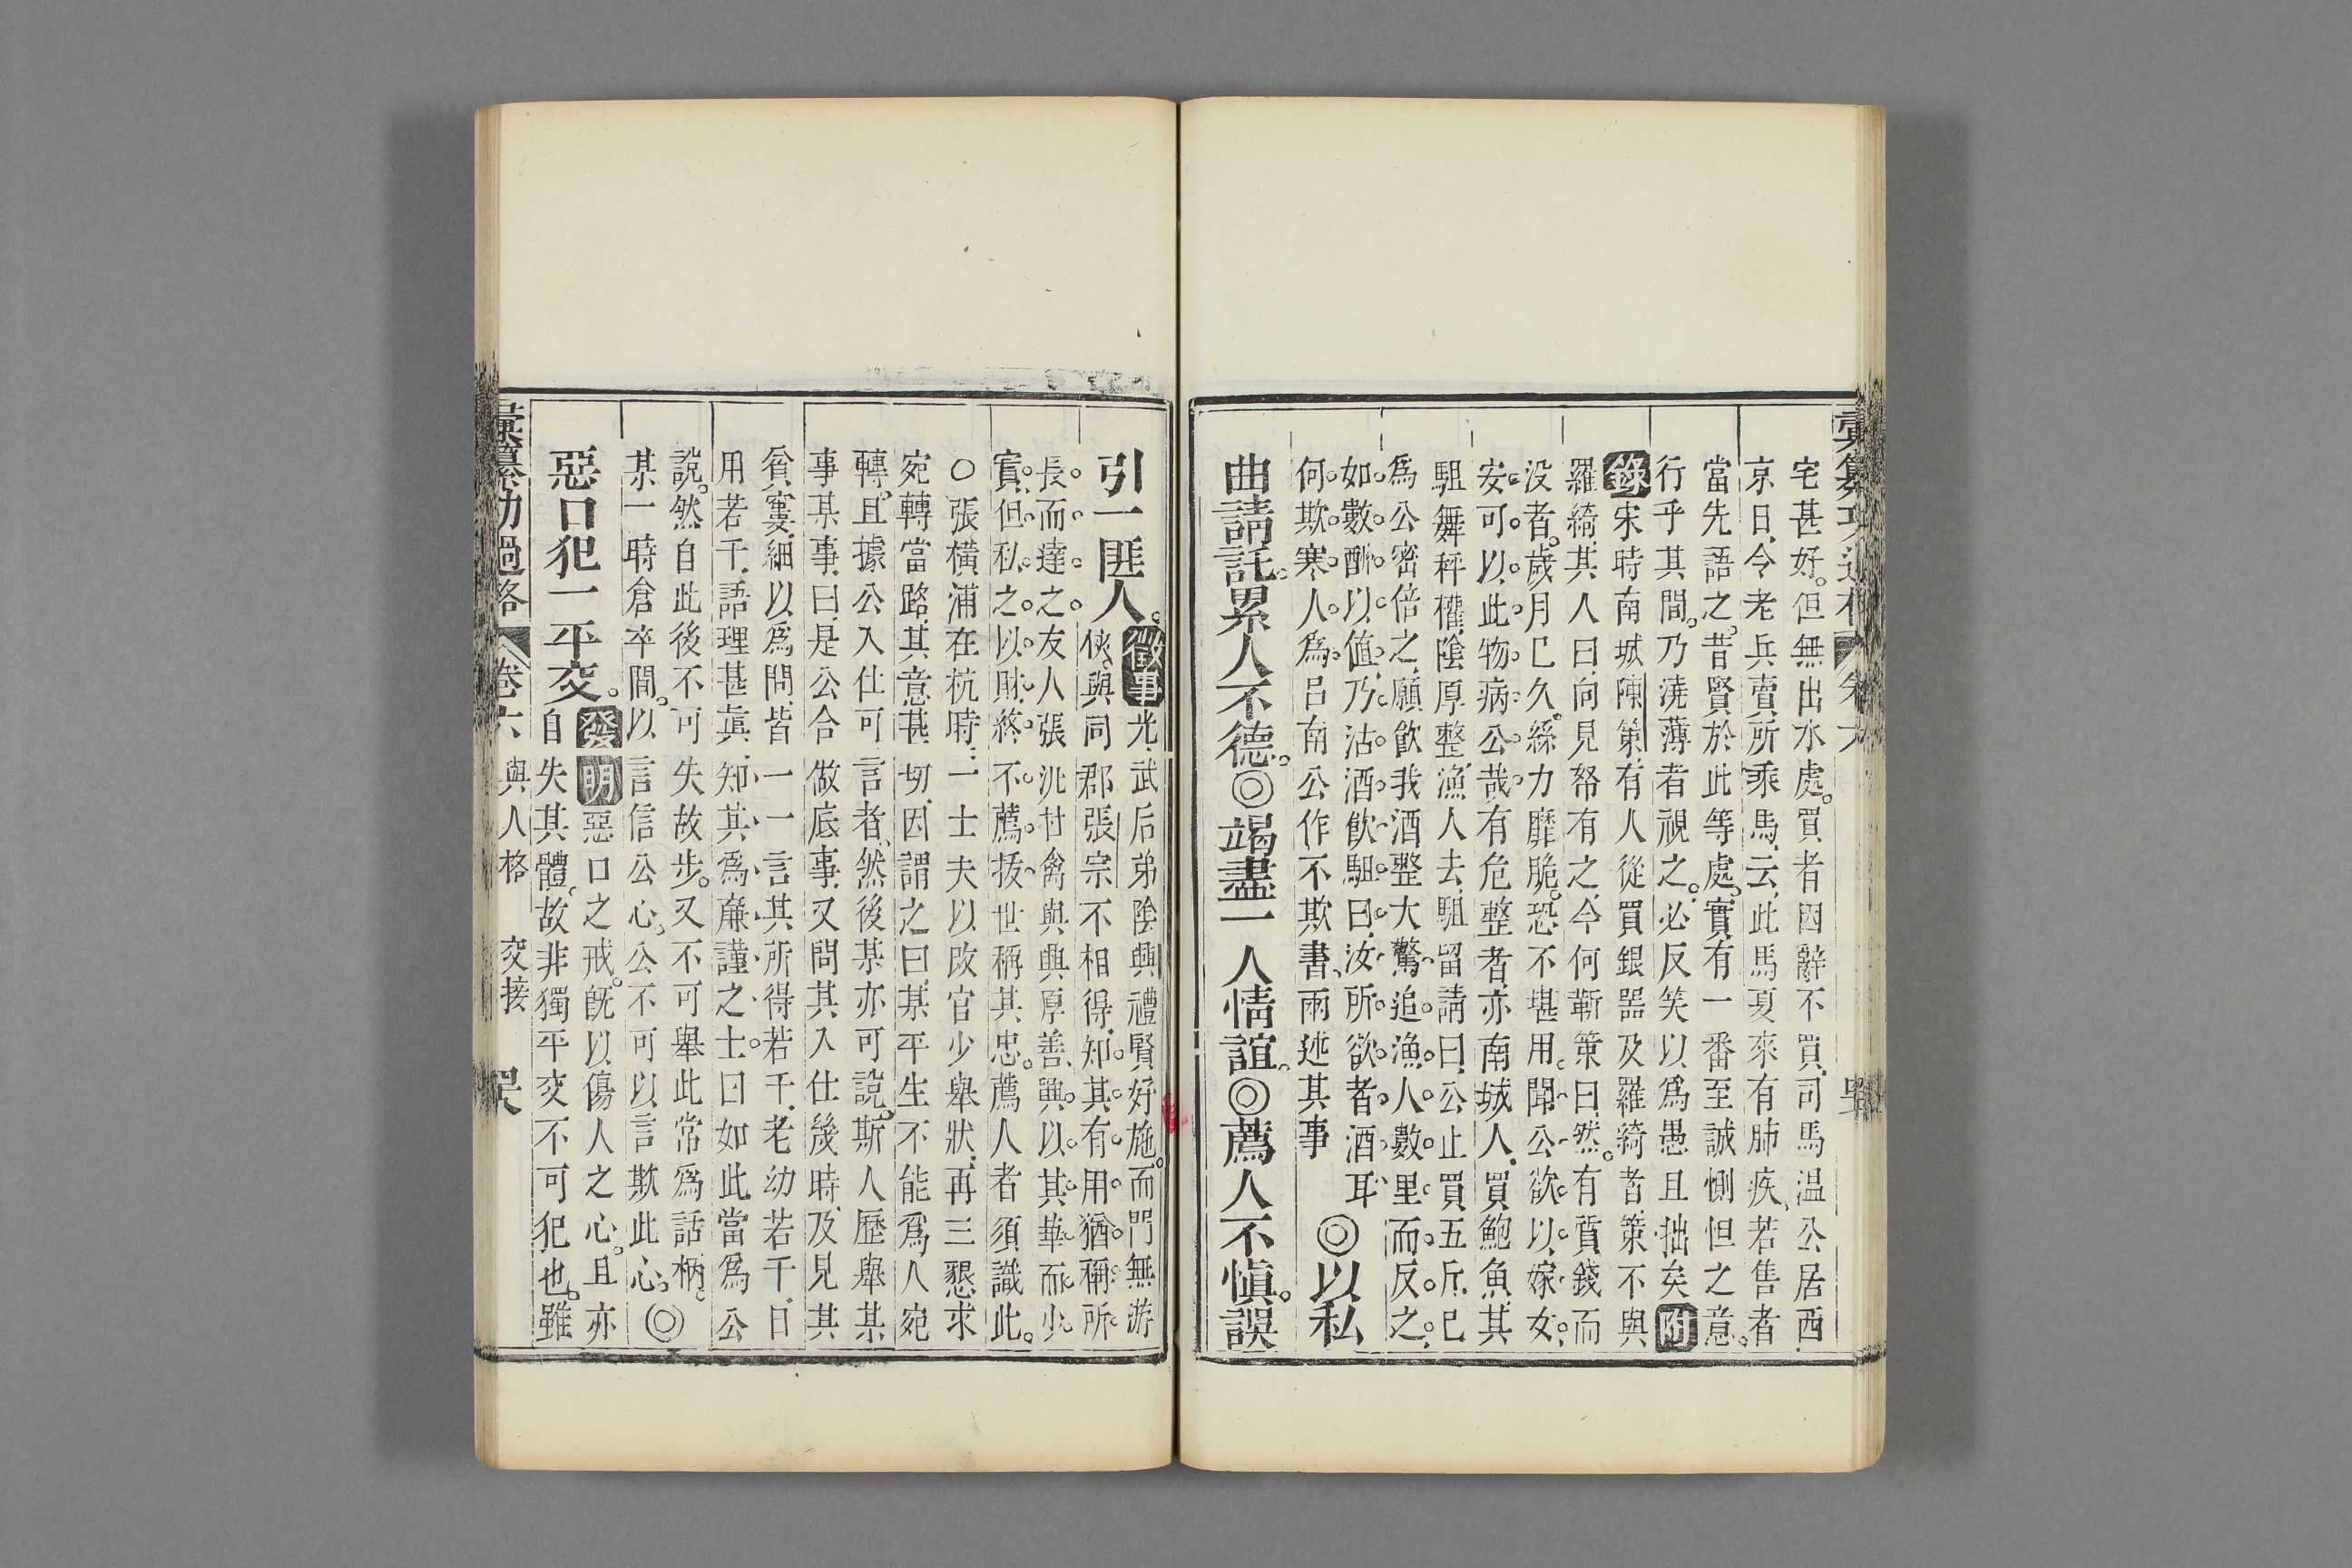 宅甚好。但無出水處。買者因辭不買。司馬温公居西
京日、令老兵賣所乘馬、云、此馬夏來有肺疾、若售者
當先語之。昔賢於此等處。實有一番至誠惻怛之意。
行乎其間。乃澆薄者視之。必反笑以爲愚且拙矣附
錄宋時南城陳策、有人從買銀器及羅綺者、策不與
羅綺、其人曰、向見帑有之、今何靳、策曰、然。有質錢而
没者。歲月已久。絲力靡脆。恐不堪用。聞公欲以嫁女。
安可以此物病公哉。有危整者、亦南城人、買鮑魚、其
駔舞秤權、陰厚整、漁人去、駔留請曰、公止買五斤、已
爲公密倍之、願飲我酒、整大驚、追漁人數里而反之、
如數酬以値、乃沽酒飲駔曰、汝所欲者酒耳
何欺寒人爲。呂南公作不欺書、雨述其事◎以私
曲請託。累人不德。◎竭盡一人情誼。◎薦人不愼。誤
引一匪人。徵事光武后弟陰興、禮賢好施。而門無游
俠。與同郡張宗不相得、知其有用、猶稱所
長而達之。友人張汜杜禽與興厚善、興以其華而少
實。但私之以財。終不薦拔、世稱其忠。薦人者須識此。
○張橫浦在杭時、一士夫以改官少舉狀、再三懇求
宛轉當路、其意甚切、因謂之曰、某平生不能爲人宛
轉。且據公入仕可言者、然後某亦可說。斯人歷舉某
事某事、曰、是公合做底事、又問其入仕幾時、及見其
貧窶、細以爲問、皆一一言其所得若干、老幼若干、日
用若干、語理甚眞、知其爲廉謹之士。曰如此當爲公
說。然自此後不可失故步。又不可舉此常爲話柄。
某一時倉卒間。以言信公心。公不可以言欺此心。◎
惡口犯一平交。發明惡口之戒。旣以傷人之心。且亦
自失其體。故非獨平交不可犯也。雖
彙纂功過格 卷六 與人格 交接